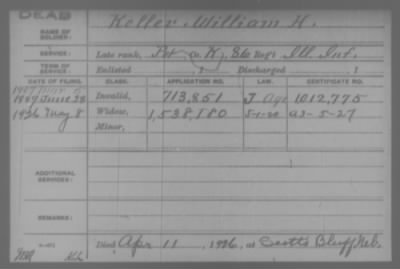 DEAD
NAME OF SOLDIER: Keller William H.
SERVICE: Late rank, Pvt Co. K, 86 Reg't Ill. Inf.
TERM OF SERVICE: Enlisted 1 Discharged 1
DATE OF FILING. CLASS. APPLICATION NO. LAW. CERTIFICATE NO.
1897 June 28 Invalid, 713,851 J Age 1,012,775
1926 May 8 Widow, 1,538,180 5-1-20 a 2-5-27
Minor,
ADDITIONAL SERVICES:
REMARKS:
Died Apr 11, 1926, at Scotts Bluff, Neb.